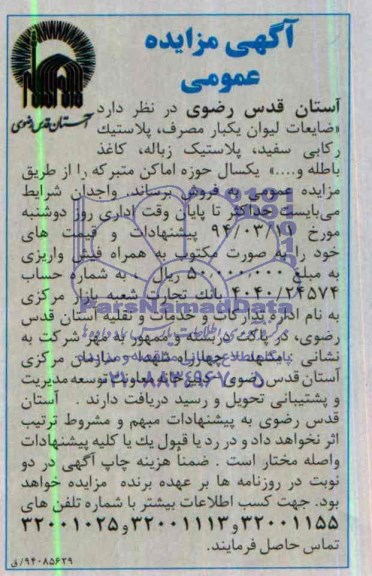 آگهی مزایده
عمومی
آستان قدس رضوی
آستان قدس رضوی در نظر دارد
«ضایعات لیوان یکبار مصرف، پلاستیک
رکابی سفید، پلاستیک زباله، کاغذ
باطله و....» یکسال حوزه اماکن متبرکه را از طریق
مزایده عمومی به فروش برساند. واجدان شرایط
می‌بایست حداکثر تا پایان وقت اداری روز دوشنبه
مورخ ۹۴/۰۳/۱۱ پیشنهادات و قیمت های
خود را به صورت مکتوب به همراه فیش واریزی
به مبلغ ۵۰،۰۰۰،۰۰۰ ریال به شماره حساب
۴۰۴۰/۲۴۵۷۴ بانک تجارت شعبه بازار مرکزی
به نام اداره تدارکات و خدمات و نقلیه آستان قدس
رضوی، در پاکت دربسته و ممهور به مهر شرکت به
نشانی : مشهد - چهارراه شهدا - سازمان مرکزی
آستان قدس رضوی - دبیرخانه معاونت توسعه مدیریت
و پشتیبانی تحویل و رسید دریافت دارند . آستان
قدس رضوی به پیشنهادات مبهم و مشروط ترتیب
اثر نخواهد داد و در رد یا قبول یك یا کلیه پیشنهادات
واصله مختار است . ضمناً هزینه چاپ آگهی در دو
نوبت در روزنامه ها بر عهده برنده مزایده خواهد
بود. جهت کسب اطلاعات بیشتر با شماره تلفن های
۳۲۰۰۱۱۵۵ و ۳۲۰۰۱۱۱۳ و ۳۲۰۰۱۰۲۵
تماس حاصل فرمایند.
۹۴۰۸۵۶۲۹/ق
ParsNamadData
۰۲۱-۸۸۳۴۹۶۷۰-۵